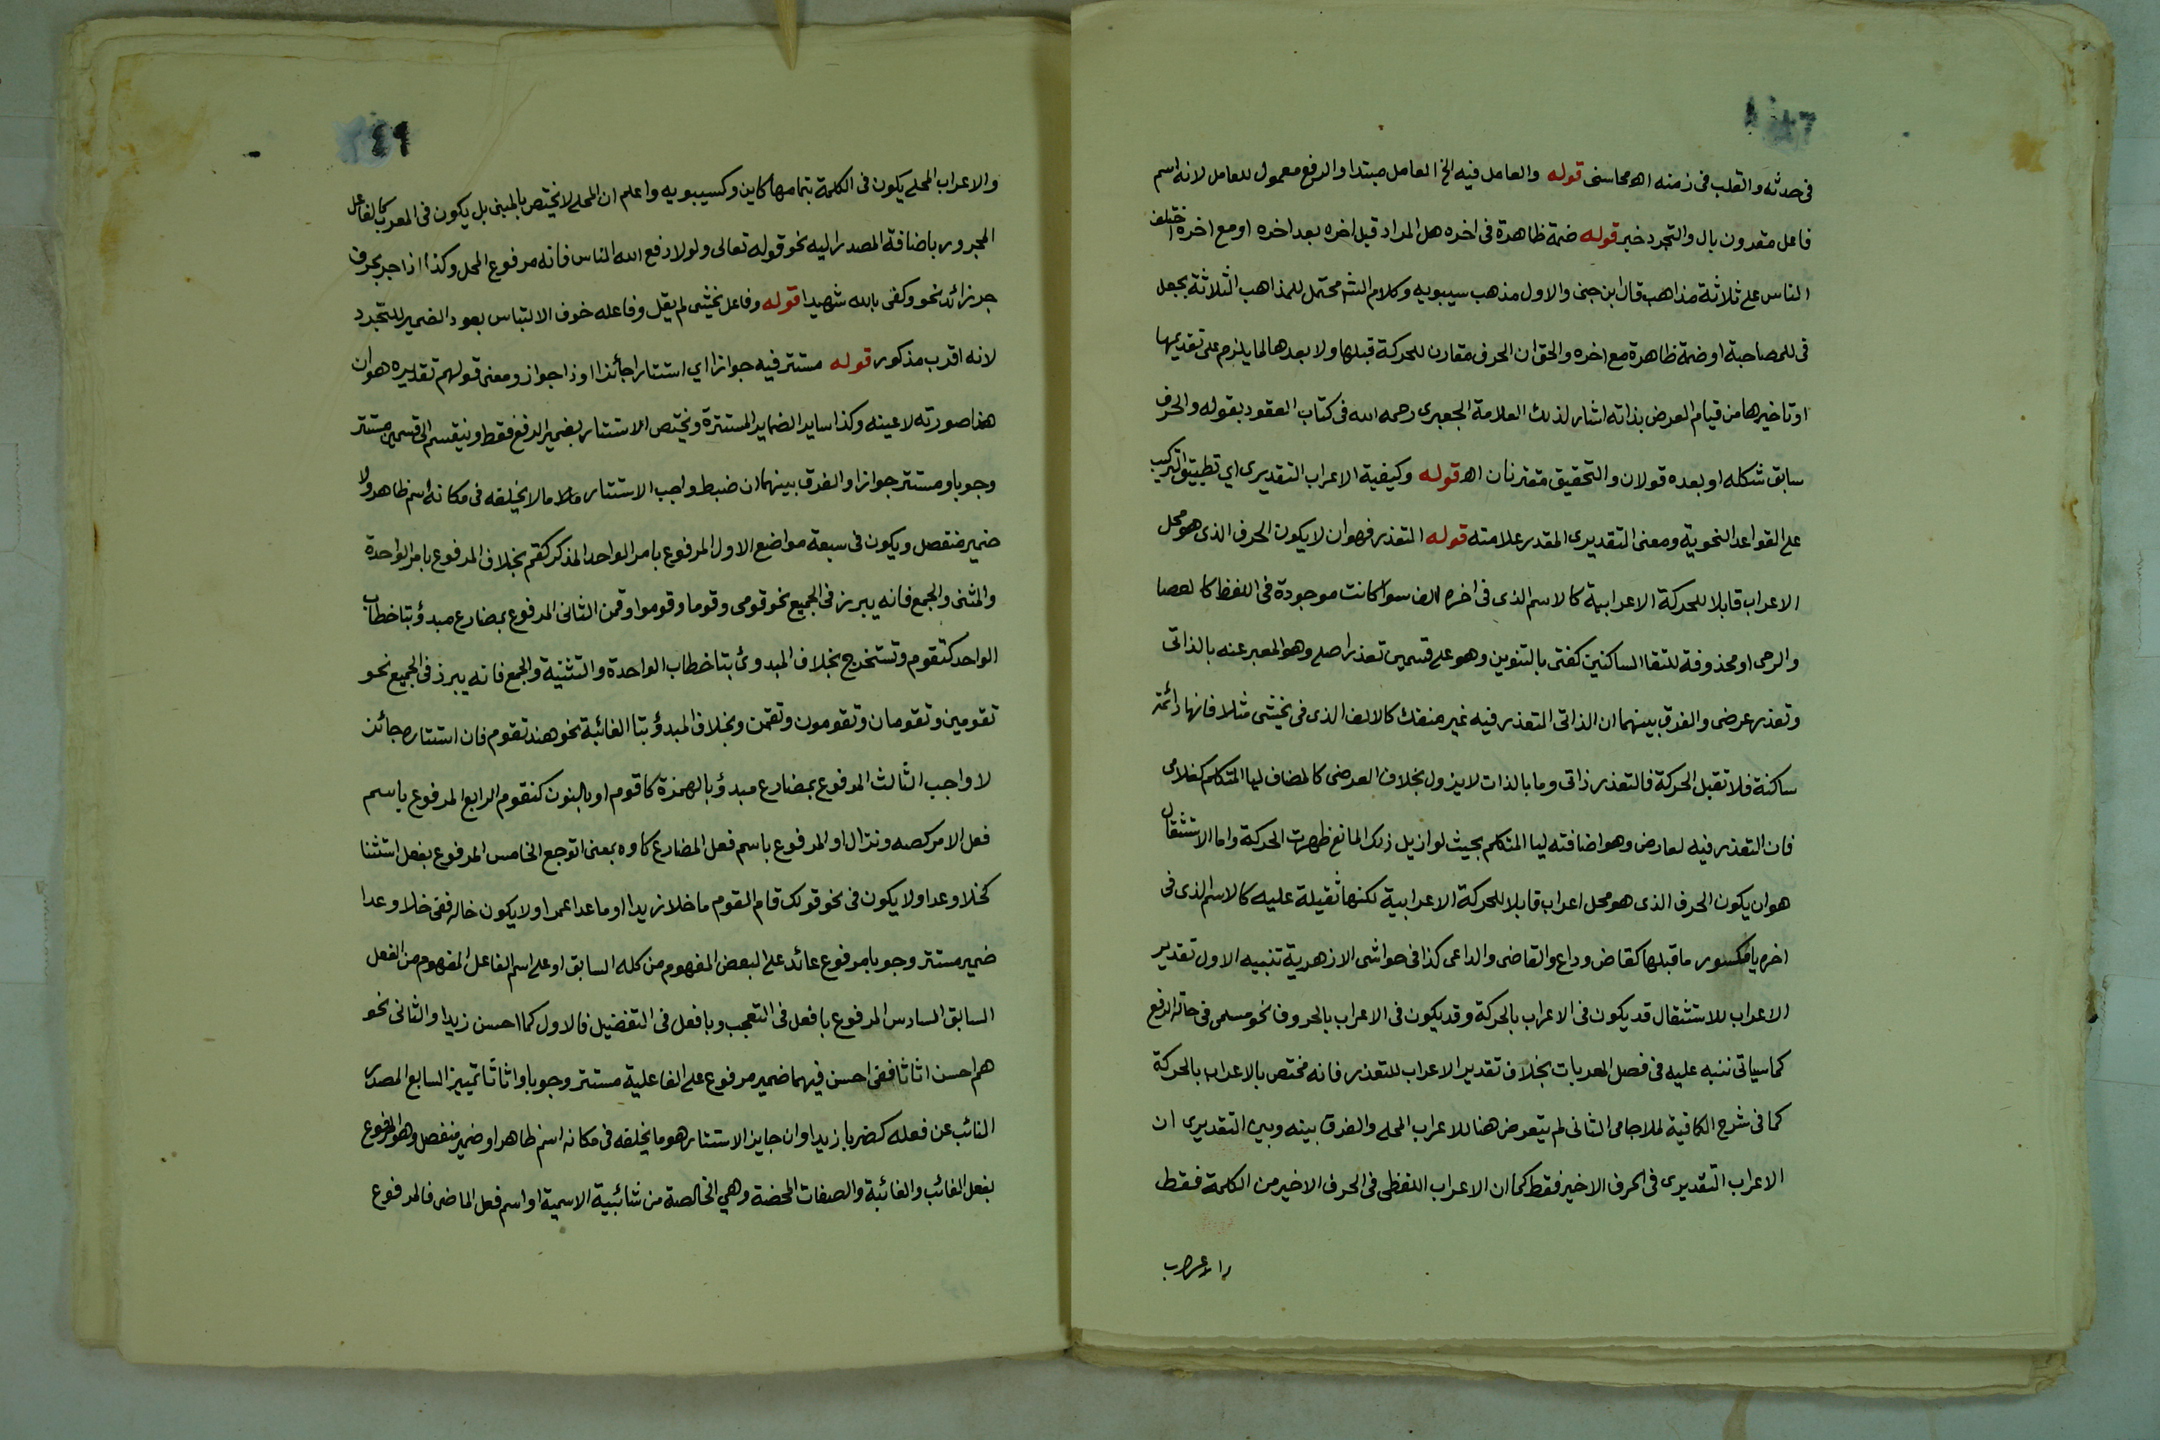 في حدثه والقلب في زمنه اه محاسنى قوله والعامل فيه الخ العامل مبتدا والرفع معمول للعامل لانه اسم
فاعل مقرون بال والتجرد خبر قوله ضمة ظاهرة في اخره هل المراد قبل اخره بعد اخره او مع اخره اختلف
الناس على ثلاثة مذاهب قال ابن جنى والاول مذهب سيبويه وكلام الشه محتمل للمذاهب الثلاثة بجعل
في للمصاحبة او ضمة ظاهرة مع اخره والحق ان الحرف مقارن للحركة قبلها ولا بعدها لما يلزم على تقديمها
او تاخيرها من قيام العرض بذاته اشار لذلك العلامة الجعبرى رحمه الله في كتاب العقود بقوله والحرف
سابق شكله او بعده قولان والتحقيق مقترنان اه قوله وكيفية الاعراب التقديرى اي تطبيق التركيب
على القواعد النحوية ومعنى التقديرى المقدر علامته قوله التعذر فهو ان لا يكون الحرف الذى هو محل
الاعراب قابلا للحركة الاعرابية كالاسم الذى في اخره الف سوا كانت موجودة في اللفظ كالعصا
والرحى او محذوفة للتقا الساكنين كفتى بالتنوين وهو على قسمين تعذر اصلى وهو المعبر عنه بالذاتى
وتعذر عرضى والفرق بينهما ان الذاتى التعذر فيه غير منفك كالالف الذى في يخشى مثلا فانها دائمة
ساكنة فلا تقبل الحركة فالتعذر ذاتى وما بالذات لا يزول بخلاف العرضى كالمضاف ليا المتكلم كغلامى
فان التعذر فيه لعارض وهو اضافته ليا المتكلم بحيث لو ازيل ذلك المانع ظهرت الحركة واما الاستثقال
هو ان يكون الحرف الذى هو محل اعراب قابلا للحركة الاعرابية لكنها ثقيلة عليه كالاسم الذى في
اخره يا مكسور ما قبلها كقاض وداع والقاضى والداعى كذا في حواشى الازهرية تنبيه الاول تقدير
الاعراب للاستثقال قد يكون في الاعراب بالحركة وقد يكون في الاعراب بالحروف نحو مسلمى في حالة الرفع
كما سياتى ننبه عليه في فصل المعربات بخلاف تقدير الاعراب للتعذر فانه مختص بالاعراب بالحركة
كما في شرح الكافية لملا جامى الثانى لم يتعرض هنا للاعراب المحلى والفرق بينه وبين التقديرى ان
الاعراب التقديرى في الحرف الاخير فقط كما ان الاعراب اللفظى في الحرف الاخير من الكلمة فقط
والاعراب
٤٩
والاعراب المحلى يكون في الكلمة بتمامها كاين وكسيبويه واعلم ان المحلى لا يختص بالمبنى بل يكون في المعرب كالفاعل
المجرور باضافة المصدر اليه نحو قوله تعالى ولولا دفع الله الناس فانه مرفوع المحل وكذا اذا جر بحرف
جر زائد نحو وكفى بالله شهيدا قوله وفاعل يخشى لم يقل وفاعله خوف الالتباس بعود الضمير للتجرد
لانه اقرب مذكور قوله مستتر فيه جوازا اي استتارا جائزا او ذا جواز ومعنى قولهم تقديره هو ان
هذا صورته لا عينه وكذا ساير الضماير المستترة ويختص الاستتار بضمير الرفع فقط وينقسم الى قسمين مستتر
وجوبا ومستتر جوازا والفرق بينهما ان ضبط واجب الاستتار ما لا يخلفه في مكانه اسم ظاهر ولا
ضمير منفصل ويكون في سبعة مواضع الاول المرفوع بامر الواحد المذكر كقم بخلاف المرفوع بامر الواحدة
والمثنى والجمع فانه يبرز في الجميع نحو قومى وقوما وقوموا وقمن الثانى المرفوع بمضارع مبدؤ بتا خطاب
الواحد كتقوم وتستخرج بخلاف المبدوئ بتا خطاب الواحدة والتثنية والجمع فانه يبرز في الجميع نحو
تقومين وتقومان وتقومون وتقمن وبخلاف المبدؤ بتا الغائبة نحو هند تقوم فان استتاره جائز
لا واجب الثالث المرفوع بمضارع مبدؤ بالهمزة كاقوم او بالنون كنقوم الرابع المرفوع باسم
فعل الامر كصه ونزال او المرفوع باسم فعل المضارع كاوه بمعنى اتوجع الخامس المرفوع بفعل استثنا
كخلا وعدا ولا يكون في نحو قولك قام القوم ما خلا زيدا او ما عدا عمرا ولا يكون خالد ففى خلا وعدا
ضمير مستتر وجوبا مرفوع عائد على البعض المفهوم من كله السابق او على اسم الفاعل المفهوم من الفعل
السابق السادس المرفوع بافعل في التعجب وبافعل في التفضيل فالاول كما احسن زيدا والثانى نحو
هم احسن اثاثا ففى احسن فيهما ضمير مرفوع على الفاعلية مستتر وجوبا واثاثا تمييز السابع المصدر
النائب عن فعله كضربا زيدا وان جايز الاستتار هو ما يخلفه في مكانه اسم ظاهر او ضمير منفصل وهو المرفوع
بفعل الغائب والغائبة والصفات المحضة وهي الخالصة من شائبية الاسمية او اسم فعل الماضى فالمرفوع